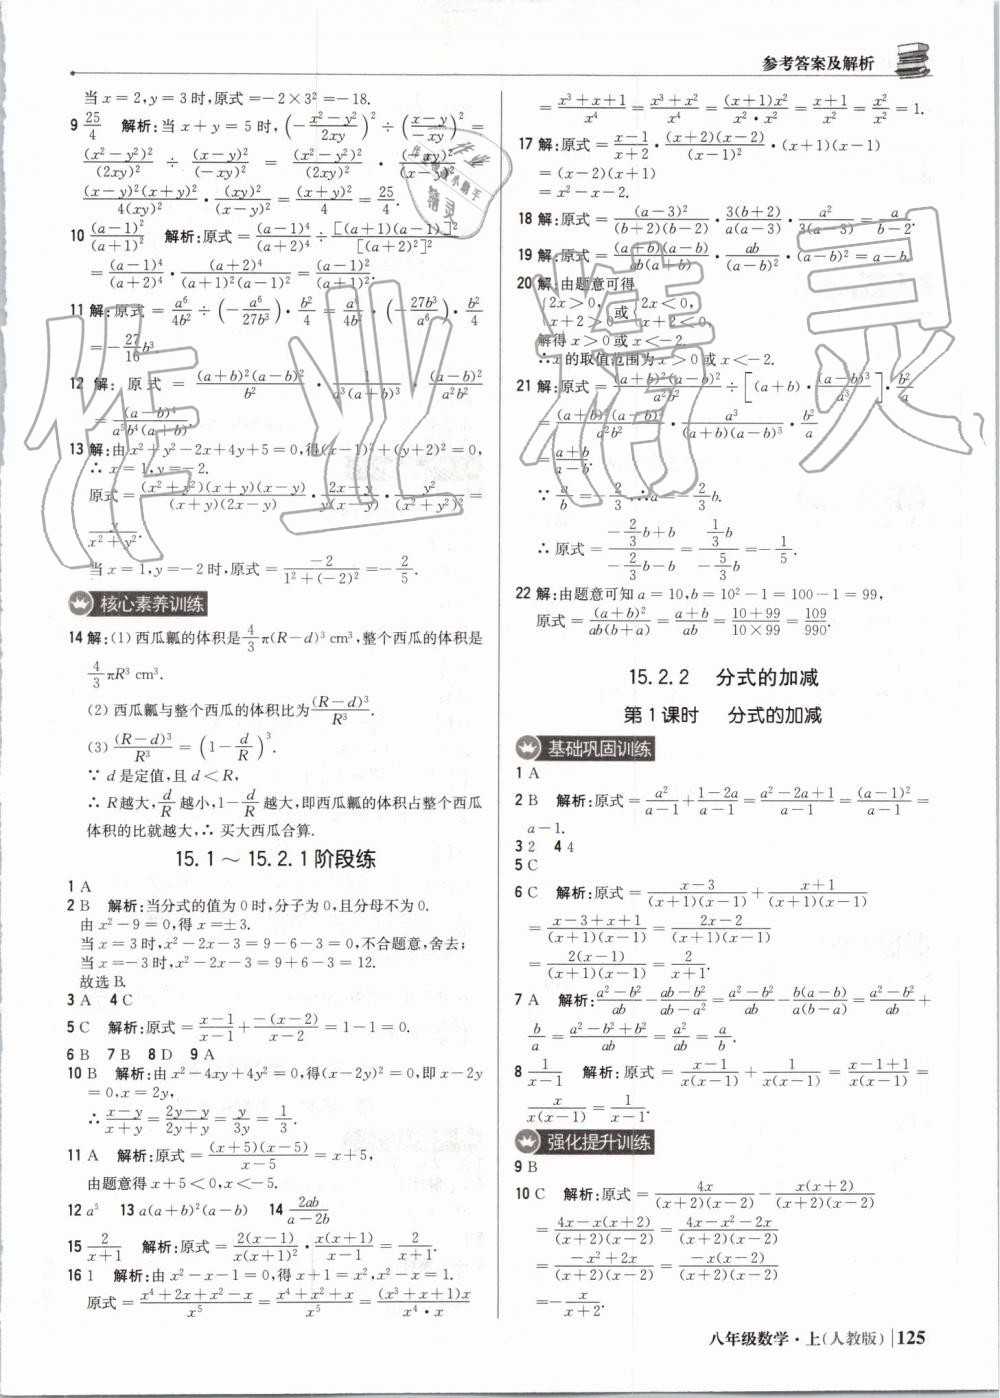 参考答案及解析
当x=2,y=3时,原式=-2×3²=-18.
9 25/4 解析:当x+y=5时,(-(x²-y²)/2xy)²÷((x-y)/-xy)²=
(x²-y²)²/(2xy)² ÷ (x-y)²/(-xy)² = (x²-y²)²/(2xy)² · (xy)²/(x-y)² =
(x-y)²(x+y)²/4(xy)² · (xy)²/(x-y)² = (x+y)²/4 = 25/4.
10 (a-1)²/(a+1)² 解析:原式=(a-1)⁴/(a+2)⁴÷[(a+1)(a-1)]²/[(a+2)²]²
=(a-1)⁴/(a+2)⁴·(a+2)⁴/(a+1)²(a-1)²=(a-1)²/(a+1)².
11 解:原式=a⁶/4b²÷(-a⁶/27b³)·b²/4=a⁶/4b²·(-27b³/a⁶)·b²/4
=-27/16 b³.
12 解:原式=(a+b)²(a-b)²/b²·1/a³(a+b)³·(a-b)²/a²b²
=(a-b)⁴/a⁵b⁴(a+b).
13 解:由x²+y²-2x+4y+5=0,得(x-1)²+(y+2)²=0,
∴x=1,y=-2.
原式=(x²+y²)(x+y)(x-y)/(x+y)(2x-y)·2x-y/y(x-y)·y²/(x²+y²)²=
y/x²+y².
当x=1,y=-2时,原式=-2/1²+(-2)²=-2/5.
核心素养训练
14 解:(1)西瓜瓤的体积是4/3π(R-d)³ cm³,整个西瓜的体积是
4/3πR³ cm³.
(2)西瓜瓤与整个西瓜的体积比为(R-d)³/R³.
(3)(R-d)³/R³=(1-d/R)³.
∵d是定值,且d<R,
∴R越大,d/R越小,1-d/R越大,即西瓜瓤的体积占整个西瓜
体积的比就越大,∴买大西瓜合算.
15.1~15.2.1阶段练
1 A
2 B 解析:当分式的值为0时,分子为0,且分母不为0.
由x²-9=0,得x=±3.
当x=3时,x²-2x-3=9-6-3=0,不合题意,舍去;
当x=-3时,x²-2x-3=9+6-3=12.
故选B.
3 A 4 C
5 C 解析:原式=x-1/x-1+-(x-2)/x-2=1-1=0.
6 B 7 B 8 D 9 A
10 B 解析:由x²-4xy+4y²=0,得(x-2y)²=0,即x-2y
=0,x=2y,
∴x-y/x+y=2y-y/2y+y=y/3y=1/3.
11 A 解析:原式=(x+5)(x-5)/x-5=x+5,
由题意得x+5<0,x<-5.
12 a⁵ 13 a(a+b)²(a-b) 14 2ab/a-2b
15 2/x+1 解析:原式=2(x-1)/x(x+1)²·x(x+1)/x-1=2/x+1.
16 1 解析:由x²-x-1=0,得x+1=x²,x²-x=1.
原式=x⁴+2x+x²-x/x⁵=x⁴+x²+x/x⁵=(x³+x+1)x/x⁴·x
=x³+x+1/x⁴=x³+x²/x⁴=(x+1)x²/x²·x²=x+1/x²=x²/x²=1.
17 解:原式=x-1/x+2·(x+2)(x-2)/(x-1)²·(x+1)(x-1)
=(x-2)(x+1)
=x²-x-2.
18 解:原式=(a-3)²/(b+2)(b-2)·3(b+2)/a(a-3)·a²/3(a-3)=a/b-2.
19 解:原式=(a+b)(a-b)/ab(a+b)·ab/(a-b)²·(a-b)²=a-b.
20 解:由题意可得
{2x>0,x+2>0或{2x<0,x+2<0,
解得x>0或x<-2.
∴x的取值范围为x>0或x<-2.
21 解:原式=(a+b)²(a-b)²/a²b²÷[(a+b)·(a-b)³/a³]·b²/a
=(a+b)²(a-b)²/a²b²·a³/(a+b)(a-b)³·b²/a
=a+b/a-b.
∵a/b=-2/3,∴a=-2/3b.
∴原式=(-2/3b+b)/(-2/3b-b)=(1/3b)/(-5/3b)=-1/5.
22 解:由题意可知a=10,b=10²-1=100-1=99,
原式=(a+b)²/ab(b+a)=a+b/ab=10+99/10×99=109/990.
15.2.2 分式的加减
第1课时 分式的加减
基础巩固训练
1 A
2 B 解析:原式=a²/a-1+1-2a/a-1=a²-2a+1/a-1=(a-1)²/a-1=
a-1.
3 2 4 4
5 C
6 C 解析:原式=x-3/(x+1)(x-1)+x+1/(x+1)(x-1)
=x-3+x+1/(x+1)(x-1)=2x-2/(x+1)(x-1)
=2(x-1)/(x+1)(x-1)=2/x+1.
7 A 解析:a²-b²/ab-ab-b²/ab-a²=a²-b²/ab-b(a-b)/a(b-a)=a²-b²/ab+
b/a=a²-b²+b²/ab=a²/ab=a/b.
8 1/x-1 解析:原式=x-1/x(x-1)+1/x(x-1)=x-1+1/x(x-1)=
x/x(x-1)=1/x-1.
强化提升训练
9 B
10 C 解析:原式=4x/(x+2)(x-2)-x(x+2)/(x+2)(x-2)
=4x-x(x+2)/(x+2)(x-2)=4x-x²-2x/(x+2)(x-2)
=-x²+2x/(x+2)(x-2)=-x(x-2)/(x+2)(x-2)
=-x/x+2.
八年级数学·上(人教版) 125
作业精灵